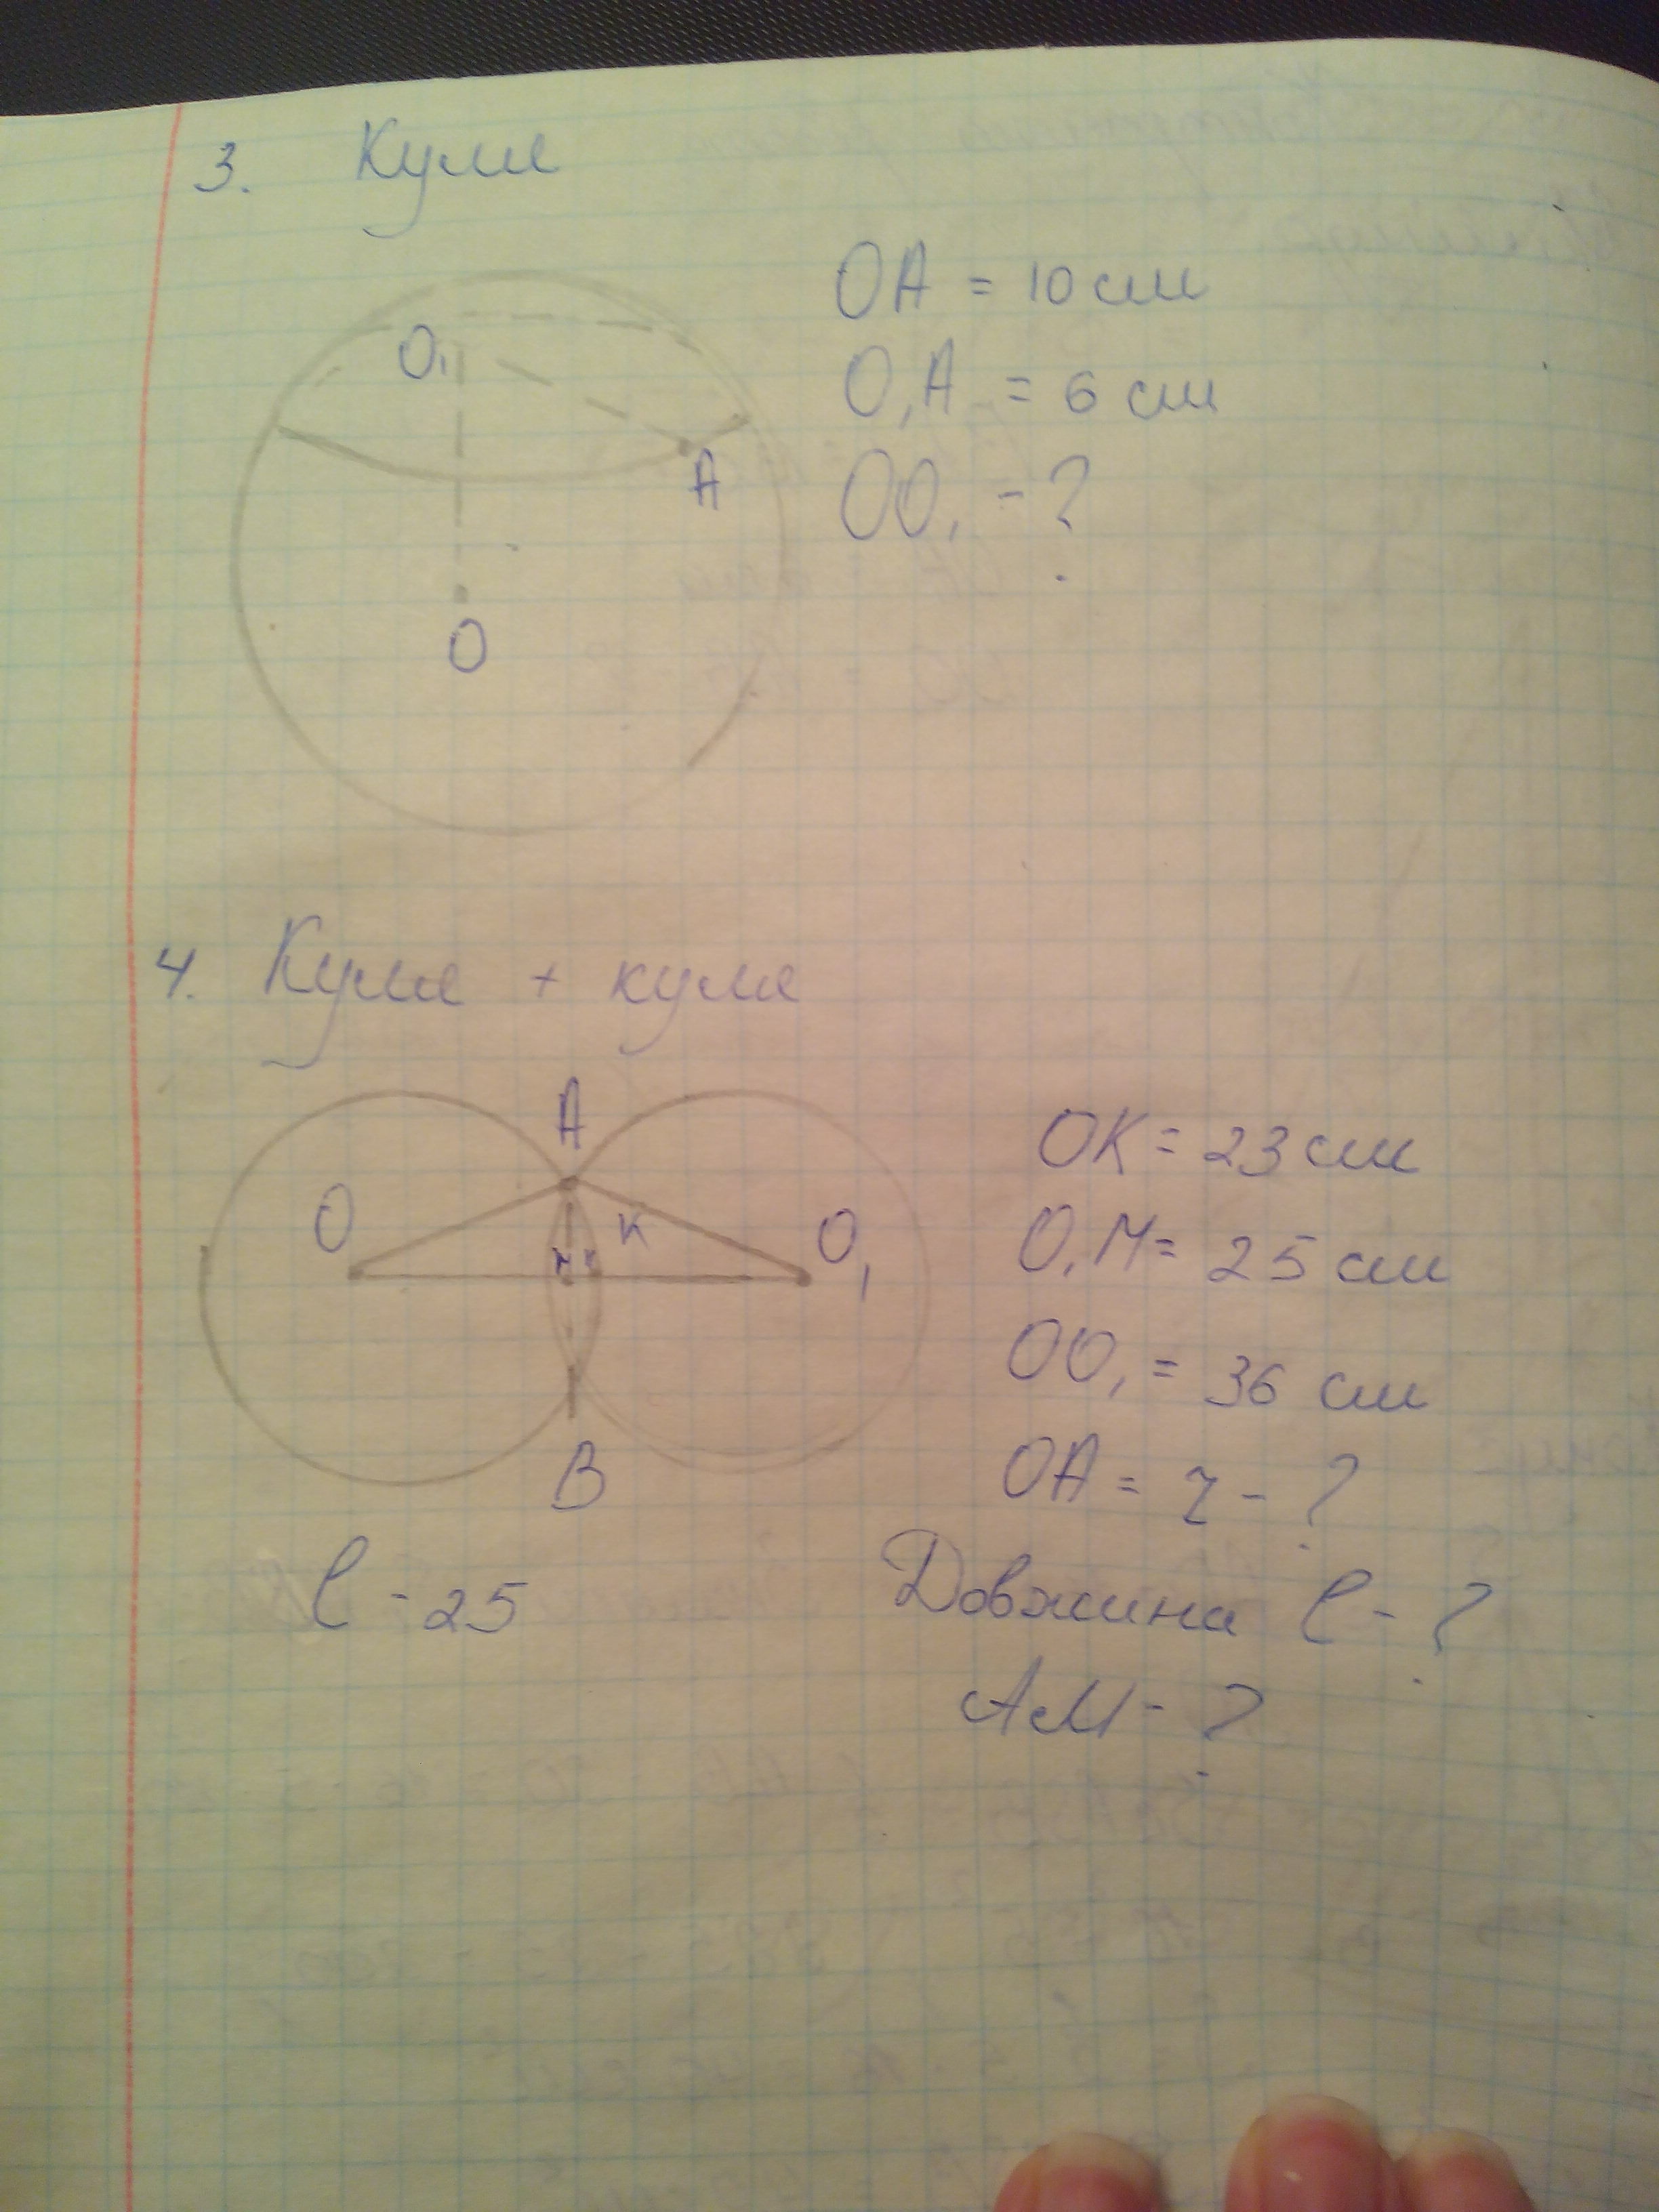 3. Куля
OA = 10 см
O₁A = 6 см
OO₁ - ?
O₁
A
O
4. Куля + куля
A
O
K
O₁
B
OK = 23 см
O₁M = 25 см
OO₁ = 36 см
OA = r - ?
ℓ - 25
Довжина ℓ - ?
AM - ?